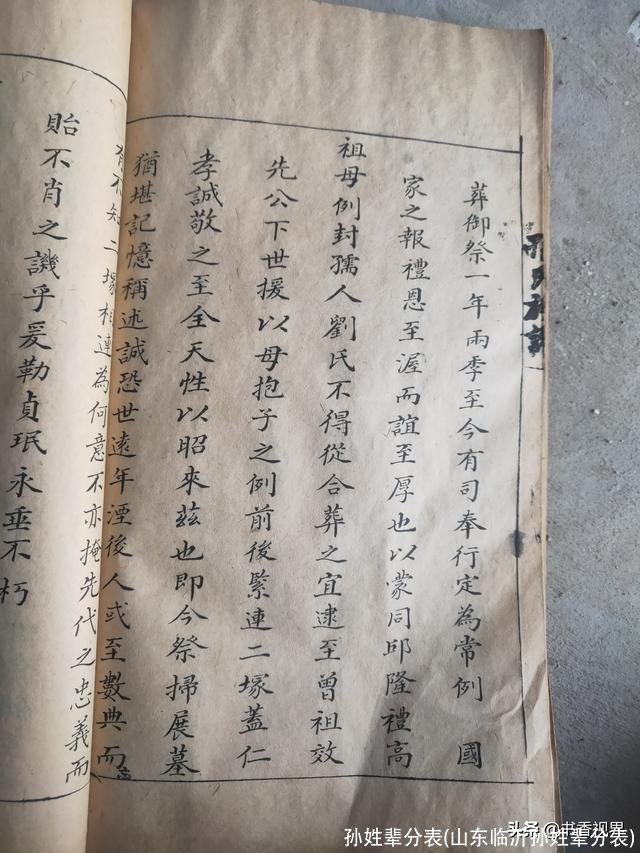 葬御祭一年兩季至今有司奉行定為常例 國
家之報禮恩至渥而誼至厚也以蒙同邱隆禮高
祖母例封孺人劉氏不得從合葬之宜逮至曾祖效
先公下世援以母抱子之例前後緊連二塚蓋仁
孝誠敬之至全天性以昭來茲也即今祭掃展墓
猶堪記憶稱述誠恐世遠年湮後人或至數典而
不知二塚相連為何意不亦掩先代之忠義而
貽不肖之譏乎爰勒貞珉永垂不朽
头条 @书香视界
孙姓辈分表(山东临沂孙姓辈分表)